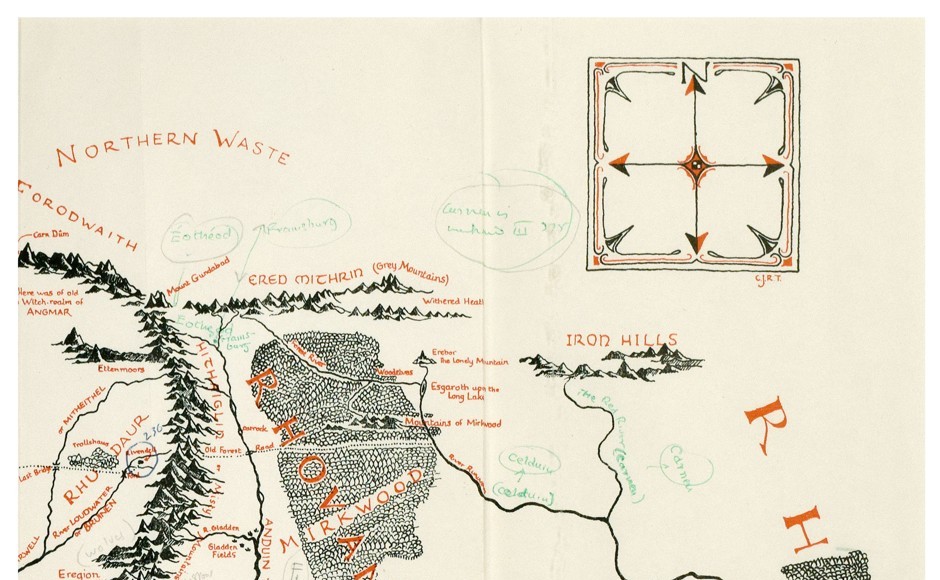 N
C.J.R.T.
NORTHERN WASTE
FORODWAITH
Carn Dûm
Here was of old
Witch-realm of
ANGMAR
Mount Gundabad
ERED MITHRIN (Grey Mountains)
Withered Heath
Éothéod
IRON HILLS
Ettenmoors
Erebor
The Lonely Mountain
Forest River
Woodelves
Esgaroth upon the
Long Lake
Mountains of Mirkwood
HITHAEGLIR
MITHEITHEL
Trollshaws
Rivendell
Last Bridge
RHUDAUR
River LOUDWATER
or BRUINEN
Carrock
Old Forest Road
River Running
Celduin
(Celduin)
The Red River (Carnen)
Carnen
RHOVAN
MIRKWOOD
Misty Mountains
R. Gladden
Gladden
Fields
ANDUIN
Eregion
RH